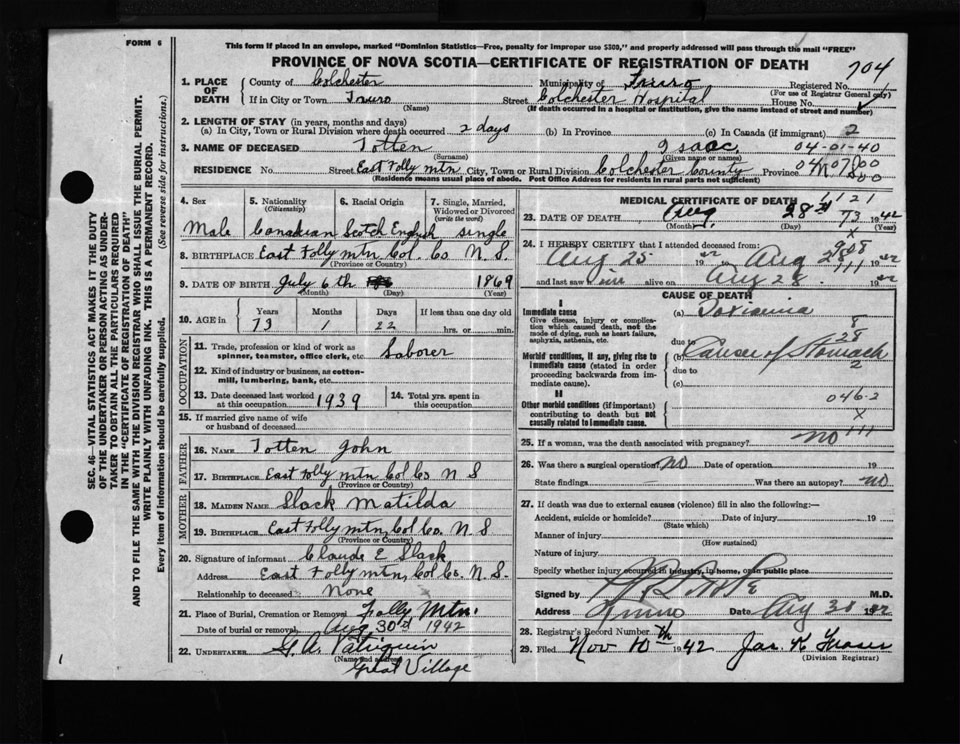 FORM 6
This form if placed in an envelope, marked "Dominion Statistics—Free, penalty for improper use $300," and properly addressed will pass through the mail "FREE"
PROVINCE OF NOVA SCOTIA—CERTIFICATE OF REGISTRATION OF DEATH
704
1. PLACE OF DEATH
County of Colchester Municipality of Truro Registered No.
(For use of Registrar General only)
If in City or Town Truro Street Colchester Hospital House No.
(Name) (If death occurred in a hospital or institution, give the name instead of street and number)
2. LENGTH OF STAY (in years, months and days)
(a) In City, Town or Rural Division where death occurred 2 days (b) In Province (c) In Canada (if immigrant) 2
3. NAME OF DECEASED Totten Isaac 04-01-40
(Surname) (Given name or names)
RESIDENCE No. Street East Folly Mtn City, Town or Rural Division Colchester County Province N.S.
(Residence means usual place of abode. Post Office Address for residents in rural parts not sufficient)
4. Sex Male
5. Nationality (Citizenship) Canadian
6. Racial Origin Scotch English
7. Single, Married, Widowed or Divorced (write the word) single
8. BIRTHPLACE East Folly Mtn, Col. Co N. S.
(Province or Country)
9. DATE OF BIRTH July 6th 1869
(Month) (Day) (Year)
10. AGE in Years Months Days If less than one day old
73 1 22 hrs. or min.
OCCUPATION
11. Trade, profession or kind of work as spinner, teamster, office clerk, etc. Laborer
12. Kind of industry or business, as cotton-mill, lumbering, bank, etc.
13. Date deceased last worked at this occupation 1939
14. Total yrs. spent in this occupation
15. If married give name of wife or husband of deceased
FATHER
16. NAME Totten John
17. BIRTHPLACE East Folly Mtn Col Co N S
(Province or Country)
MOTHER
18. MAIDEN NAME Slack Matilda
19. BIRTHPLACE East Folly Mtn, Col Co. N. S
(Province or Country)
20. Signature of informant Claude E Slack
Address East Folly Mtn, Col Co. N. S.
Relationship to deceased None
21. Place of Burial, Cremation or Removal Folly Mtn.
Date of burial or removal Aug 30th 1942
22. UNDERTAKER G. A. Patriquin
(Name and address)
Great Village
MEDICAL CERTIFICATE OF DEATH
23. DATE OF DEATH Aug 28 1942
(Month) (Day) (Year)
24. I HEREBY CERTIFY that I attended deceased from
Aug 25 1942 to Aug 28 1942
and last saw him alive on Aug 28 1942
CAUSE OF DEATH
I
Immediate cause
Give disease, injury or complication which caused death, not the mode of dying, such as heart failure, asphyxia, asthenia, etc.
(a) Toxiemia
due to
Morbid conditions, if any, giving rise to immediate cause (stated in order proceeding backwards from immediate cause).
(b) Cancer of Stomach
due to
(c)
II
Other morbid conditions (if important) contributing to death but not causally related to immediate cause.
046-2
25. If a woman, was the death associated with pregnancy? no
26. Was there a surgical operation? No Date of operation 19
State findings Was there an autopsy? no
27. If death was due to external causes (violence) fill in also the following:—
Accident, suicide or homicide? Date of injury 19
(State which)
Manner of injury
(How sustained)
Nature of injury
Specify whether injury occurred in industry, in home, or in public place
Signed by M.D.
Address Truro Date Aug 30 1942
28. Registrar's Record Number
29. Filed Nov 10th 1942 Jas. K Fraser
(Division Registrar)
SEC. 46—VITAL STATISTICS ACT MAKES IT THE DUTY
OF THE UNDERTAKER OR PERSON ACTING AS UNDER-
TAKER TO OBTAIN ALL THE PARTICULARS REQUIRED
IN THE "CERTIFICATE OF REGISTRATION OF DEATH"
AND TO FILE THE SAME WITH THE DIVISION REGISTRAR WHO SHALL ISSUE THE BURIAL PERMIT.
WRITE PLAINLY WITH UNFADING INK. THIS IS A PERMANENT RECORD.
Every item of information should be carefully supplied. (See reverse side for instructions.)